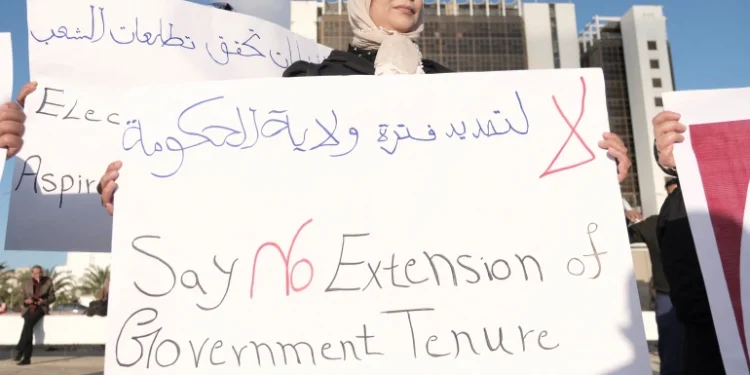 تحقق تطلعات الشعب
Elec
Aspir
لا لتمديد فترة ولاية الحكومة
Say No Extension of
Government Tenure